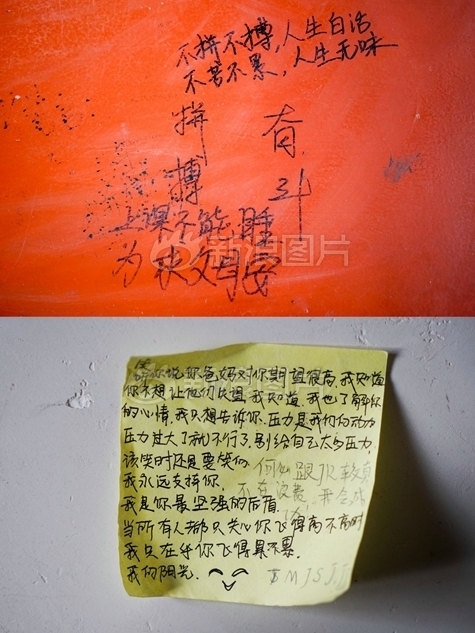 不拼不搏,人生白活
不苦不累,人生无味
拼 有
搏 斗
上课不能睡
为
新浪图片
听你说你爸妈对你期望很高,我知道
你不想让他们失望,我知道,我也了解你
的心情,我只想告诉你,压力是我们的动力
压力过大了就不行了,别给自己太多压力,
该笑时还是要笑的
何必跟 较真
我永远支持你、
不在
我是你最坚强的后盾
当所有人都只关心你飞得高不高时
我只在乎你飞得累不累、
我的阳光.